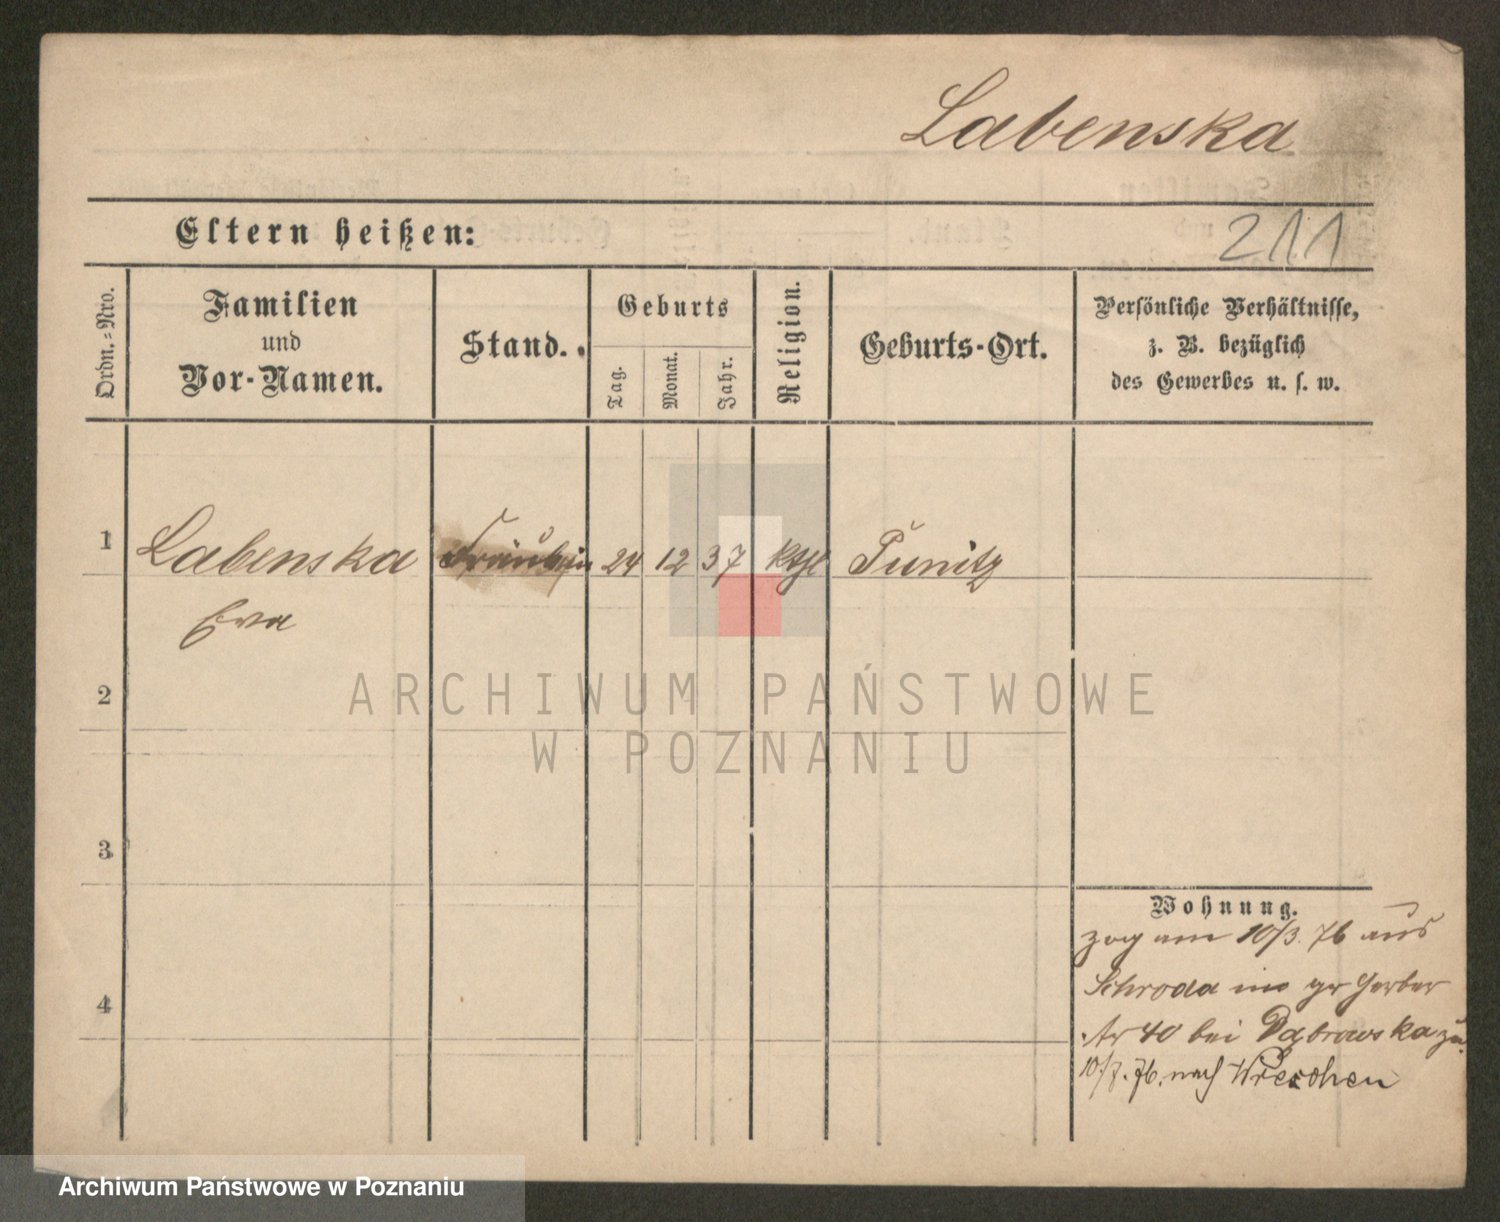 Labenska
Eltern heißen:
211
Ordn.-Nro.
Familien
und
Vor-Namen.
Stand.
Geburts
Tag.
Monat.
Jahr.
Religion.
Geburts-Ort.
Persönliche Verhältnisse,
z. B. bezüglich
des Gewerbes u. s. w.
1 Labenska Fräulein 24 12 37 kthl Punitz
Eva
2
3
4
Wohnung.
zog am 10/3. 76 aus
Schroda in gr Gerber
Str 40 bei Dąbrowska zu
10/7. 76. nach Wreschen
ARCHIWUM PAŃSTWOWE
W POZNANIU
Archiwum Państwowe w Poznaniu